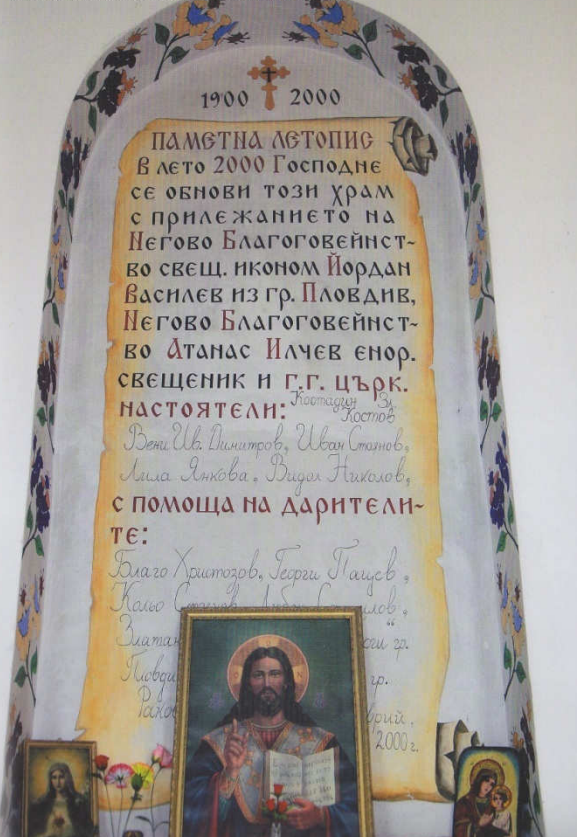 1900 2000
ПАМЕТНА ЛЕТОПИС
В ЛЕТО 2000 ГОСПОДНЕ
СЕ ОБНОВИ ТОЗИ ХРАМ
С ПРИЛЕЖАНИЕТО НА
НЕГОВО БЛАГОГОВЕЙНСТ-
ВО СВЕЩ. ИКОНОМ ЙОРДАН
ВАСИЛЕВ ИЗ ГР. ПЛОВДИВ,
НЕГОВО БЛАГОГОВЕЙНСТ-
ВО АТАНАС ИЛЧЕВ ЕНОР.
СВЕЩЕНИК И Г.Г. ЦЪРК.
НАСТОЯТЕЛИ: Костадин Зл.
Костов
Вени Ив. Димитров, Иван Стоянов,
Лила Янкова, Видол Николов,
С ПОМОЩА НА ДАРИТЕЛИ-
ТЕ:
Благо Христозов, Георги
Кольо
гр.
гр.
2000г.